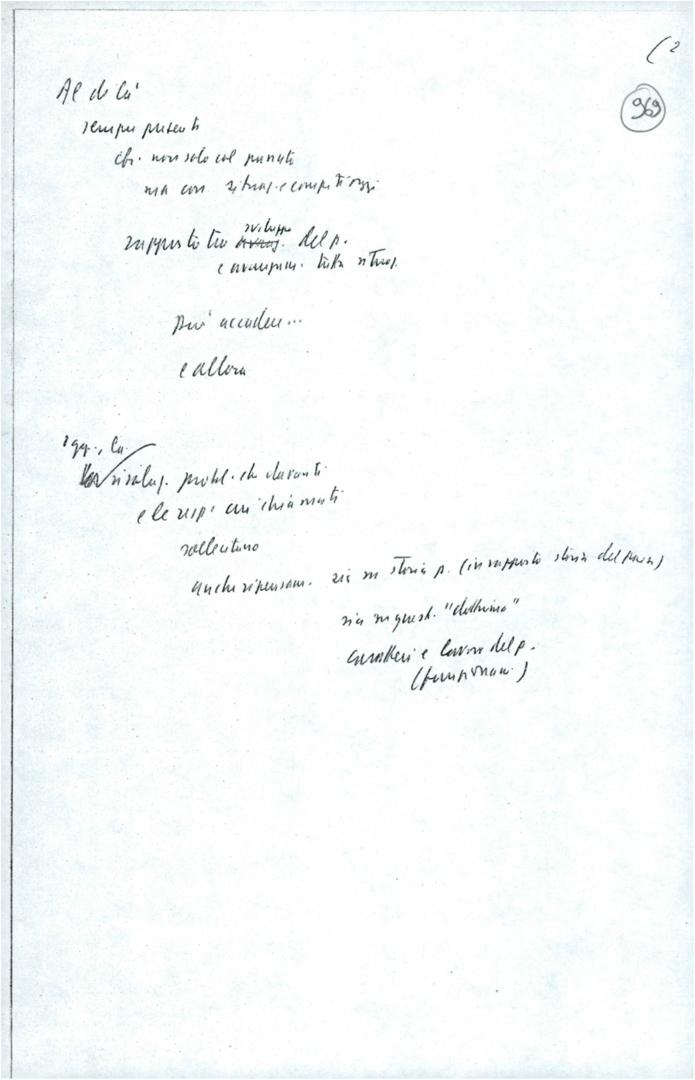 (2
969
Al di là
sempre presenti
che non solo col passato
ma con situaz. e compiti oggi
rapporto tra sviluppo del p.
e avanzam. tutta situaz.
Può accadere...
e allora
oggi, la
situaz. probl. che davanti
e le resp. cui chiamati
sollecitano
anche ripensam. sia su storia p. (in rapporto storia del paese)
sia su quest. "dottrina"
caratteri e lavoro del p.